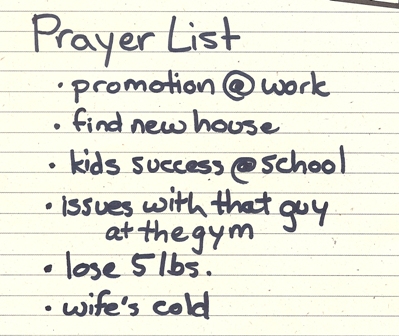 Prayer List
• promotion @ work
• find new house
• kids success @ school
• issues with that guy
at the gym
• lose 5 lbs.
• wife's cold